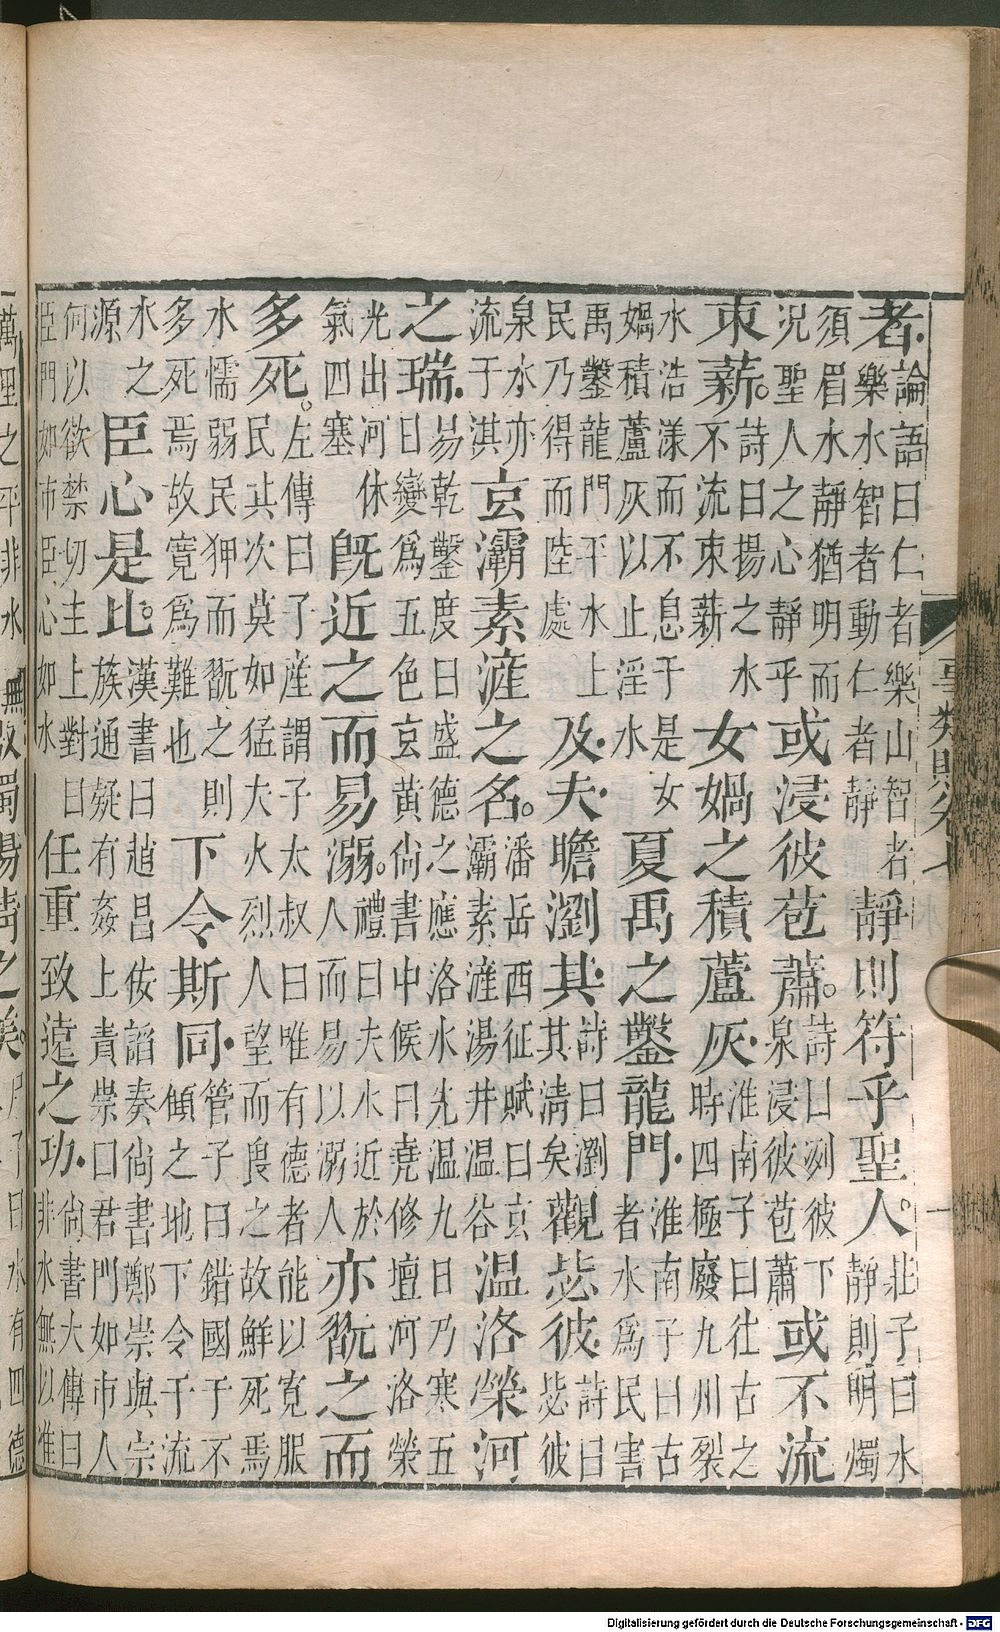 者.論語曰仁者樂山智者
樂水智者動仁者靜
靜則符乎聖人。莊子曰水
靜則明燭
須眉水靜猶明而
況聖人之心靜乎
或浸彼苞蕭。詩曰冽彼下
泉浸彼苞蕭
或不流
束薪。詩曰揚之水
不流束薪
女媧之積蘆灰.淮南子曰往古之
時四極廢九州裂
水浩漾而不息于是女
媧積蘆灰以止淫水
夏禹之鑿龍門.淮南子曰古
者水為民害
禹鑿龍門平水上
民乃得而陸處
及夫瞻瀏其.詩曰瀏
其清矣
觀毖彼.詩曰
毖彼
泉水亦
流于淇
玄灞素滻之名。潘岳西征賦曰玄
灞素滻湯井温谷
温洛榮河
之瑞.易乾鑿度曰盛德之應洛水先温九日乃寒五
日變為五色玄黃尚書中候曰堯修壇河洛榮
光出河休
氣四塞
既近之而易溺。禮曰夫水近於
人而易以溺人
亦翫之而
多死。左傳曰子產謂子太叔曰唯有德者能以寬服
民其次莫如猛夫火烈人望而畏之故鮮死焉
水懦弱民狎而翫之則
多死焉故寬為難也
下令斯同.管子曰錯國于不
傾之地下令于流
水之
源
臣心是比。漢書曰趙昌佞諂奏尚書鄭崇與宗
族通疑有姦上責崇曰君門如市人
何以欲禁切主上對曰
臣門如市臣心如水
任重致遠之功.尚書大傳曰
非水無以準
萬里之平非水
之美。尸子曰水有四德
事類賦卷七
一
Digitalisierung gefördert durch die Deutsche Forschungsgemeinschaft - DFG